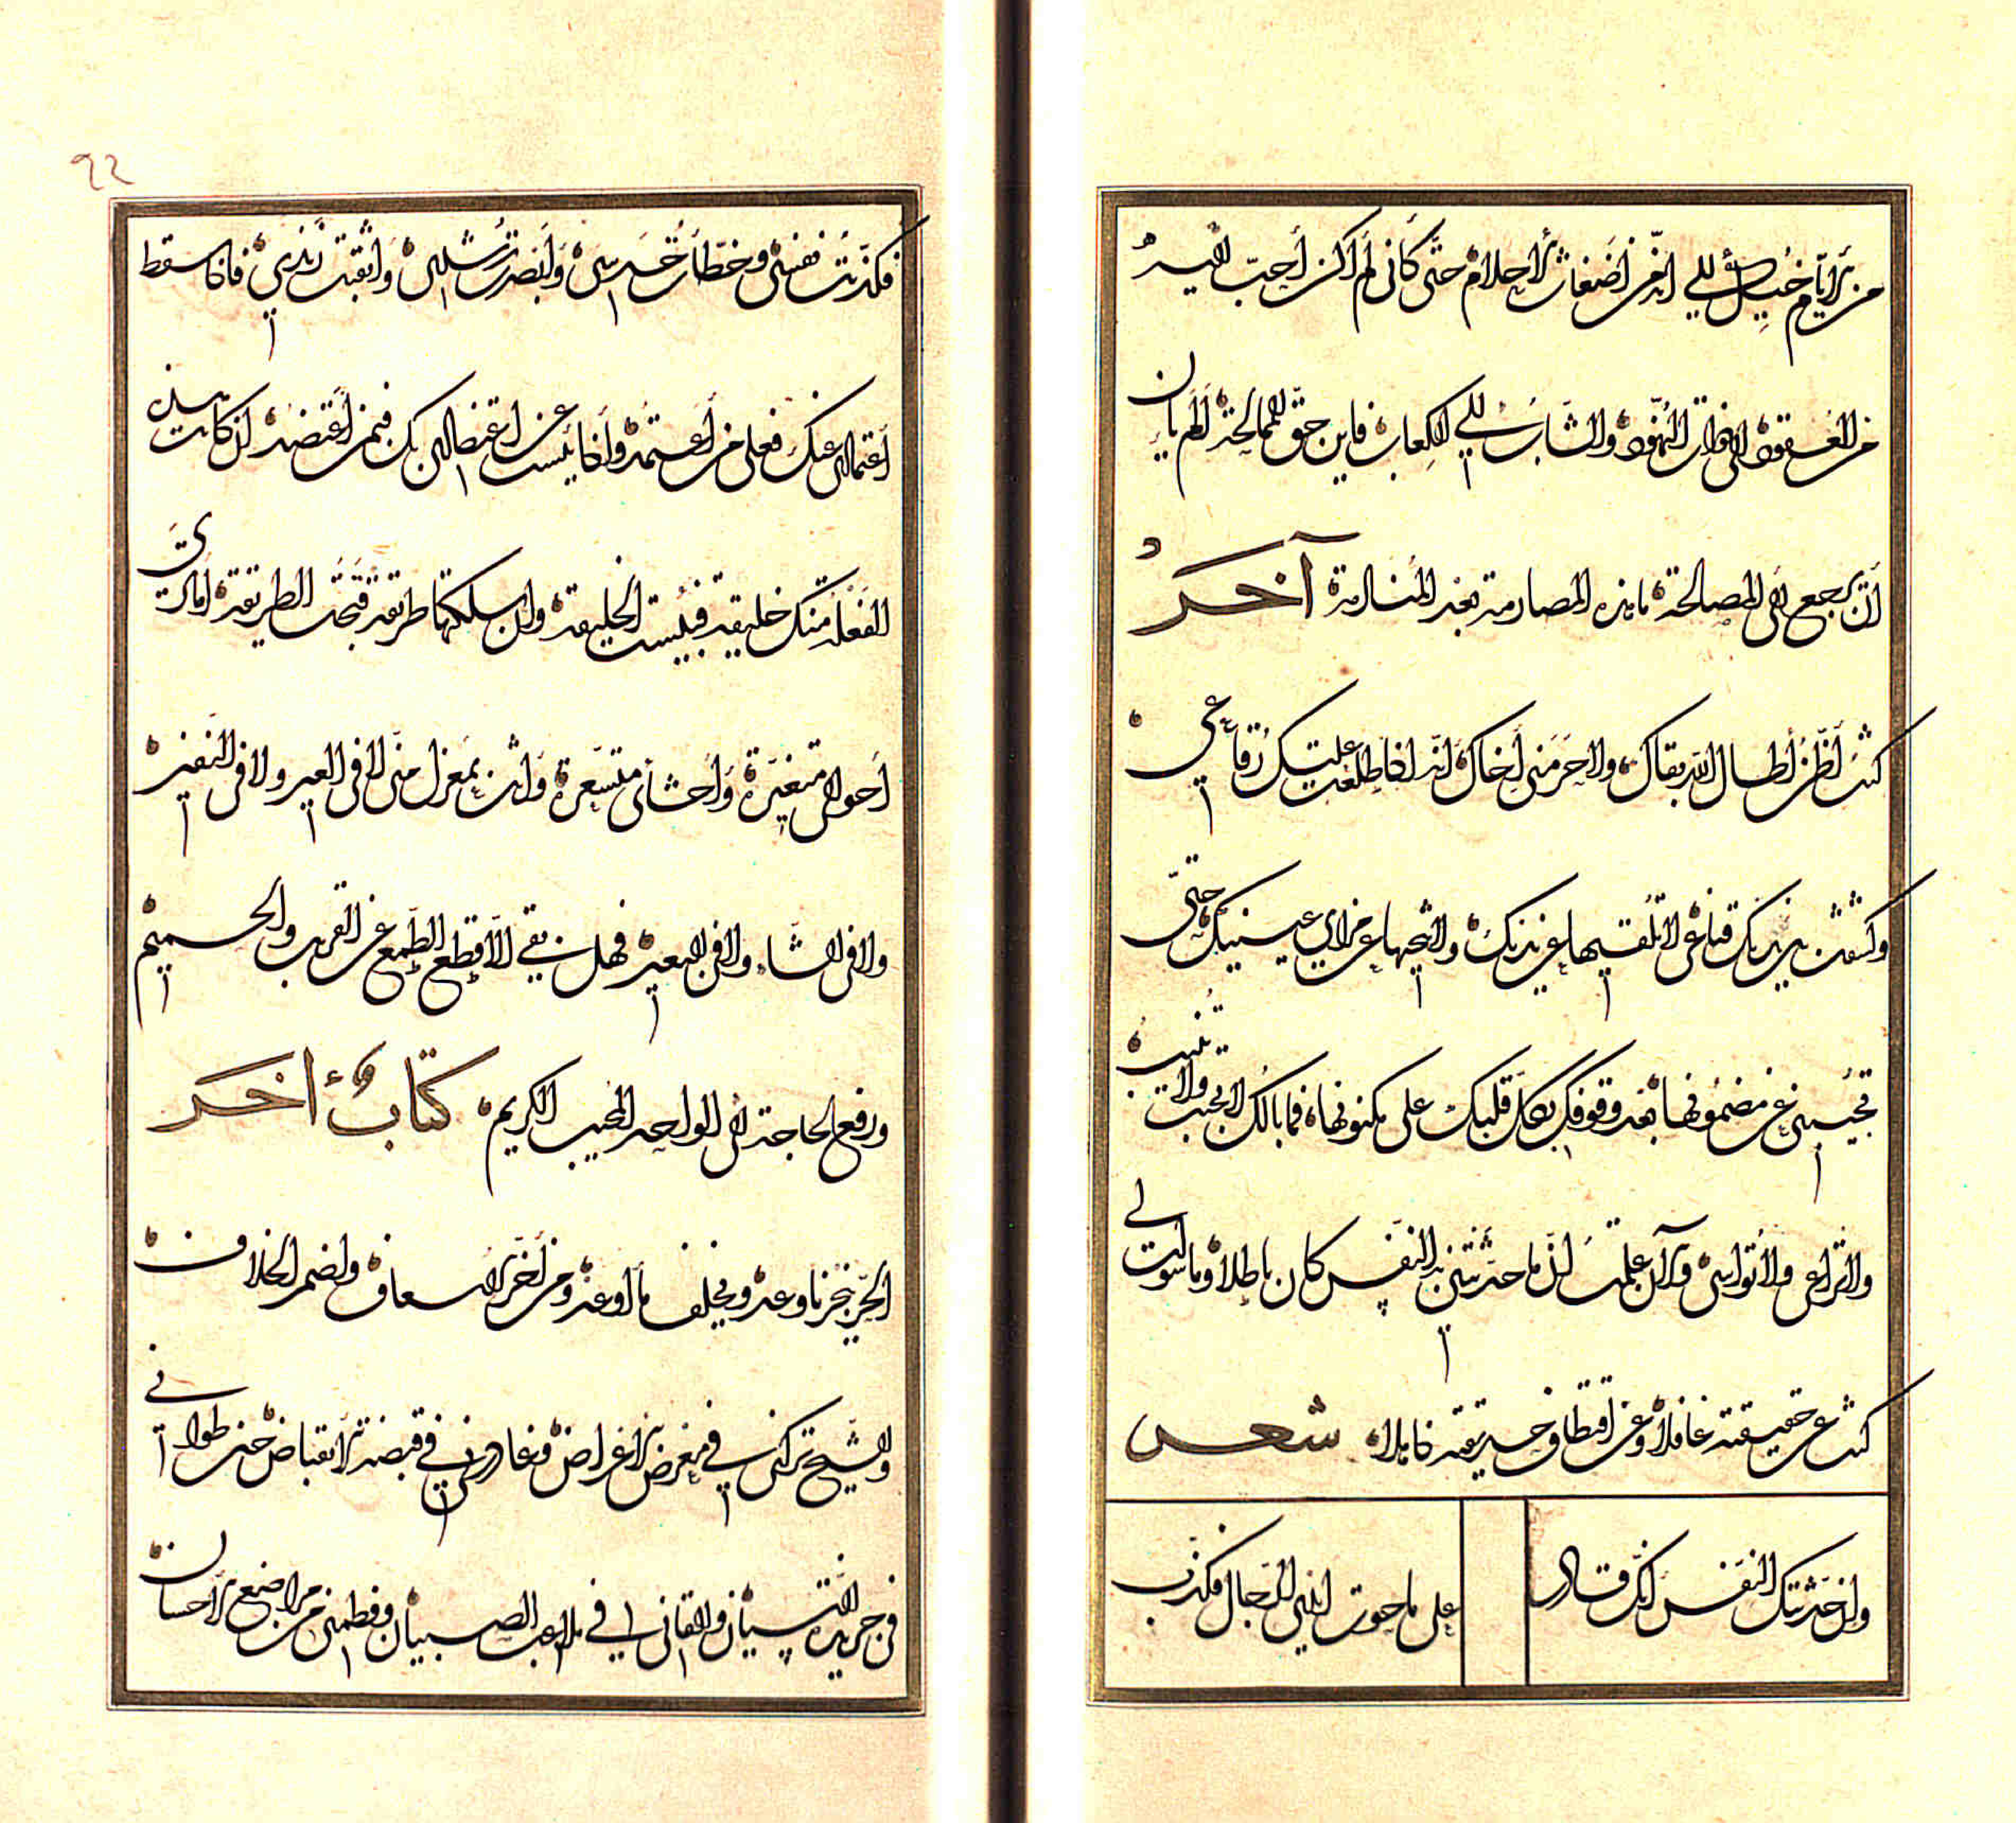 من الأيام خيل إلي انه من أضغاث الأحلام حتى كأني لم أكن أحب إليه
من العنقود إلى ذوات النهود والشارب إلى الكعاب فاين حق الممالحة ألم يأن
أن يرجع إلى المصالحة ما هذه المصارمة بعد المنادمة آخر
كنت أظن أطال الله بقاك ولا حرمني أخاك انه اذا طلعت عليك رقاعي
وكشفت بين يديك قناعي لا تلقيها عن يديك ولا تنحيها عن مرأى عينيك حتى
تجيبني عن مضمونها بعد وقوفك بكل قلبك على مكنونها فما بالك لا تجيب ولا تنيب
ولا تراعي ولا تواسي والآن علمت ان ما حدثتني به النفس كان باطلا وما سولت لي
كنت عن حقيقته غافلا وعن اقتطاف حديقته ذابلا شعر
وان حدثتك النفس انك قادر
على ما حوت ايدي الرجال فكذب
92
فكذبت نفسي وخطأت حدسي وأبصرت رشدي وأثقبت زندي فاذا سقط
اعتمادي عنك فعلى من أعتمد واذا يئست عن اعتضادي بك فبمن أعتضد ان كانت هذه
الفعلة منك خليقة فبئست الخليقة وان سلكتها طريقة قبحت الطريقة أما ترى
أحوالي متغيرة وأحشائي متسعرة وأنت بمعزل مني لا في العير ولا في النفير
ولا في الشاء ولا في البعير فهل بقي الا قطع الطمع عن القريب والحميم
ورفع الحاجة إلى الواحد المجيب الكريم كتاب آخر
الحر ينجز ما وعد ويخلف ما أوعد ومن أخر الاسعاف ولضمر الخلاف
والشيخ تركني في معرض الاعراض وغادرني في قبضة الانقباض حين طواني
في جريدة النسيان والقاني في ملاعب الصبيان وفطمني من مراضع الاحسان